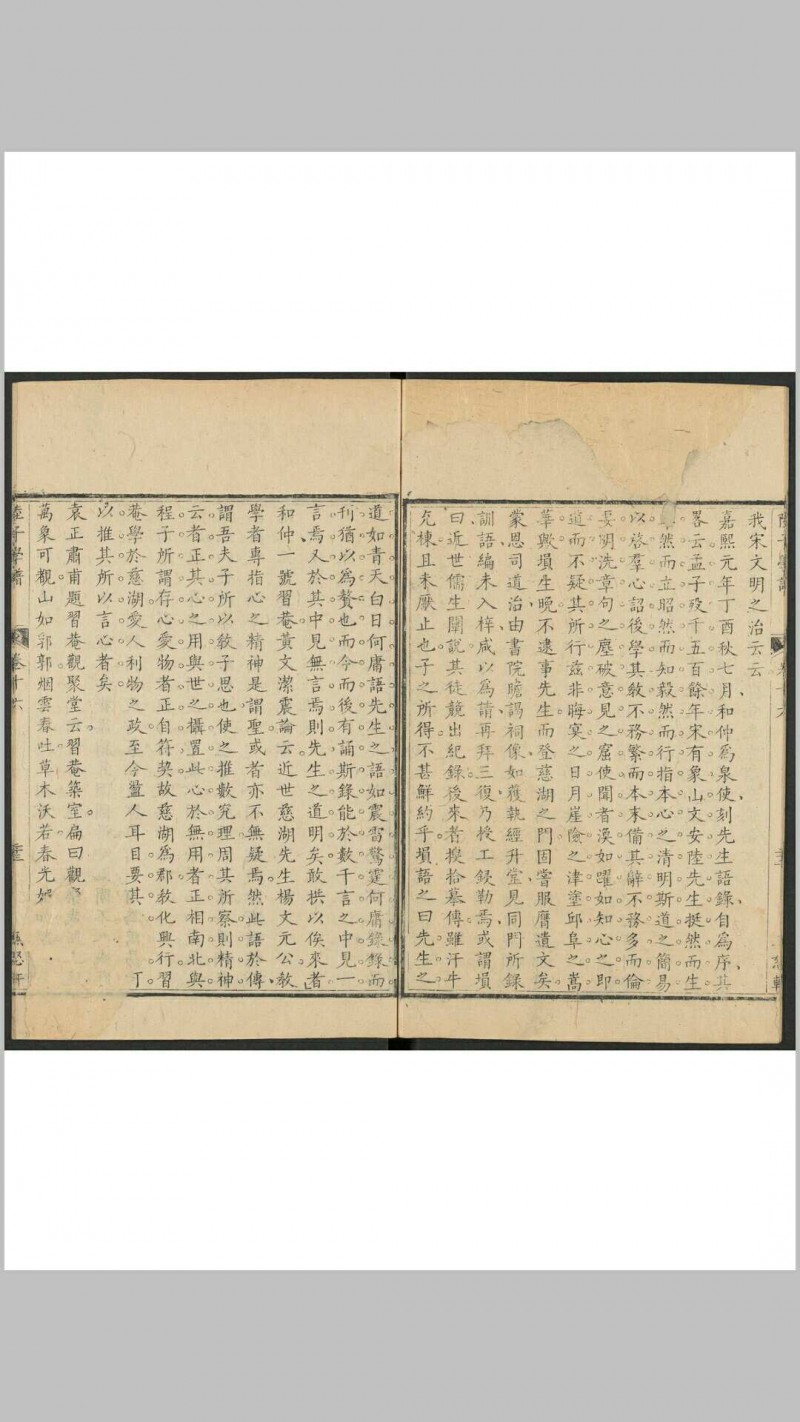 我宋文明之治云云
嘉熙元年丁酉秋七月和仲為泉使、刻先生語錄、自為序、其
畧云孟子歿千五百餘年、宋有象山文安陸先生挺然而生
然而立、昭然而知、毅然而行、指本心之清明、斯道之簡易
以啓羣心、詔後學、其敎不務繁而本末備、其辭不務多而倫
要明、洗章句之塵、破意見之窟、使聞者渙如躍如、知心之即
道而不疑其所行、茲非晦冥之日月、崖險之津塗、邱阜之嵩
華歟、塤生晚不逮事先生、而登慈湖之門、固嘗服膺遺文矣
蒙恩司道、治由書院瞻謁祠像、如獲執經升堂、見同門所錄
訓語編、未入梓、咸以為請、再拜三復、乃授工鋟勒焉、或謂塤
曰、近世儒生闡說、其徒競出紀錄、後來者掇拾摹傳、雖汗牛
充棟、且未厭止也、子之所得、不甚鮮約乎、塤語之曰、先生之
道、如青天白日、何庸語、先生之語、如震雷驚霆、何庸錄、錄而
刊、猶以為贅也、而今而後有誦斯錄、能於數千言之中見一
言焉、又於其中見無言焉、則先生之道明矣、敢拱以俟來者
和仲一號習菴、黃文潔震論云、近世慈湖先生楊文元公敎
學者專指心之精神是謂聖、或者亦不無疑焉、然此語於傳
謂吾夫子所以敎子思也、使之推數究理、周其所察、則精神
云者、正其心之用、與世之攝置此心於無用者、正相南北、與
程子所謂存心愛物者、正自符契、故慈湖為郡、敎化興行、習
菴學於慈湖、愛人利物之政、至今盈人耳目、要其 丁
以推其所以言心者矣
袁正肅甫題習菴觀聚堂云、習菴築室、扁曰觀
萬象可觀、山如郭郭、烟雲春吐、草木沃若、春光如
陸子學譜 卷十六